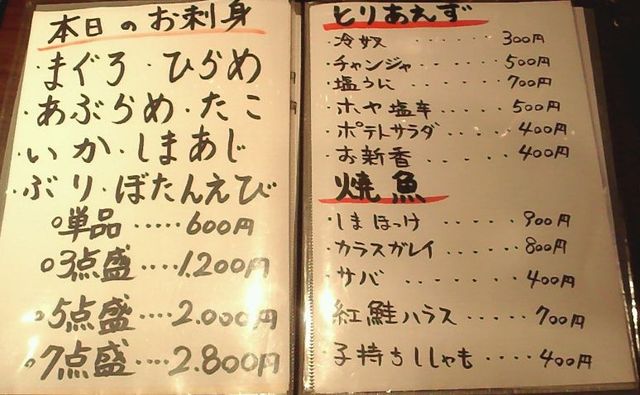 本日のお刺身
・まぐろ・ひらめ
・あぶらめ・たこ
・いか・しまあじ
・ぶり・ぼたんえび
○単品・・・・・600円
○3点盛・・・・1.200円
○5点盛・・・・2.000円
○7点盛・・・・2.800円
とりあえず
・冷奴 300円
・チャンジャ・・・・・500円
・塩うに・・・・・700円
・ホヤ塩辛・・・・・500円
・ポテトサラダ・・・・400円
・お新香・・・・・400円
焼魚
・しまほっけ・・・・・900円
・カラスガレイ・・・・800円
・サバ・・・・・・400円
・紅鮭ハラス・・・・・700円
・子持ちししゃも・・・・400円